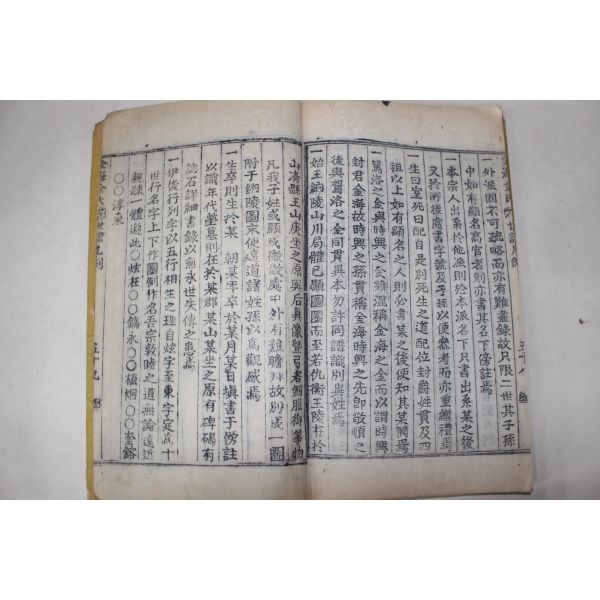 一外派固不可疏略而亦有難盡錄故只限二世其子孫
中如有顯名高官者則亦書其名下傍註焉
一本宗人出系於他派則於本派名下只書出系某之後
又於所後處書字號及子孫以便於參考而亦重繼禮焉
一生曰室死曰配自是別死生之道配位封爵姓貫及四
祖以上如有顯名之人則必書某之後使知其某閥焉
一駕洛之金與時興之金雖混稱金海之金而以謂時興
封君金海故時興之孫貫稱金海時興之先卽敬順之
後與駕洛之金同貫異本勿許同譜識別異姓焉
一始王納陵山川局體已願圖圖而至若仇衡王陵在於
山淸縣王山庚坐之原與后眞像曁弓者劒服御等物
凡我子姓或顯或微散處中外有難瞻拜故別成一圖
附于納陵圖末使遠道諸姓孫以爲觀感焉
一生卒則生於某 朝某年卒於某月某日塡書于傍註
以識年代塋墓則在於某郡某山某坐之原有碑碣有
誌石詳細書錄以無永世失傳之患焉
一伊後行列字以五行相生之理自炫字至東字定爲十
世行名字上下作圖例作名吾宗敦睦之道無論遠近
親疎一體遵此○炫在○○鎬永○○植炯○○奎鎔
○○淳東
五十九